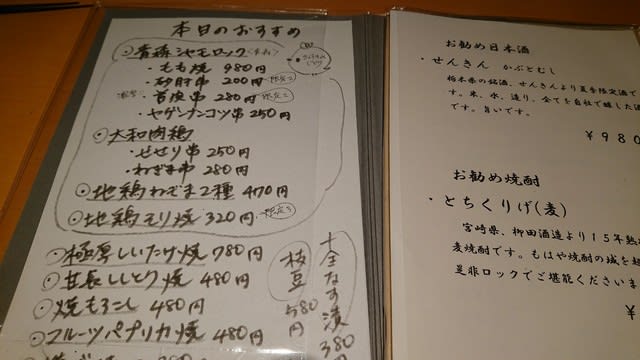 本日のおすすめ
青森シャモロック
・もも焼 980円
・砂肝串 200円
・首皮串 280円
・ヤゲンナンコツ串 250円
大和肉鶏
・せせり串 250円
・ねぎま串 280円
地鶏ねぎま2種 470円
地鶏モリ焼 320円
極厚しいたけ焼 780円
甘長ししとう焼 480円
焼もろこし 480円
フルーツパプリカ焼 480円
枝豆 580円
十全なす漬 380円
お勧め日本酒
・せんきん かぶとむし
栃木県の銘酒、せんきんより夏季限定酒で
す。米、水、造り、全てを自社で醸した酒
です。旨いです。
¥980
お勧め焼酎
・とちくりげ(麦)
宮崎県、柳田酒造より15年熟
麦焼酎です。もはや焼酎の域を超
是非ロックでご堪能くださいま
¥